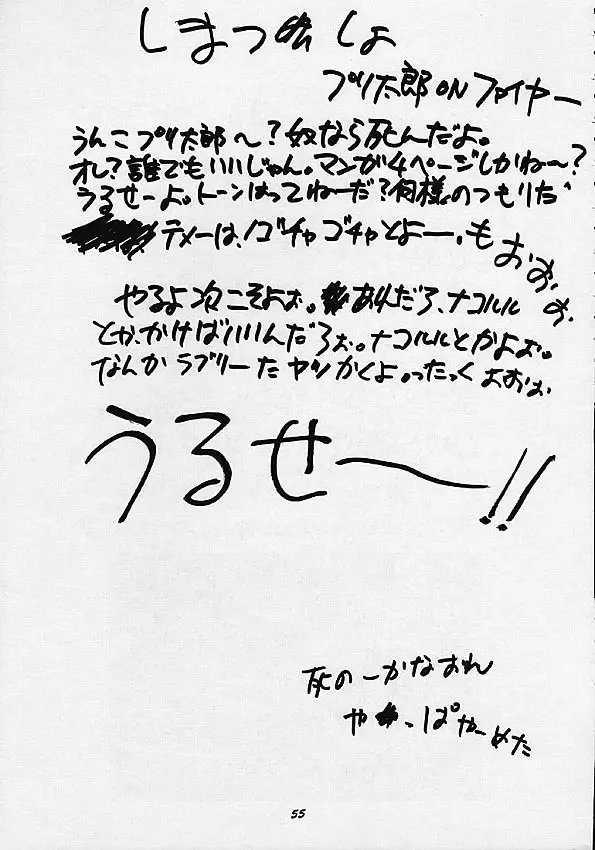 しまつ しょ
プリ太郎 ON ファイヤー
うんこプリ太郎〜?奴なら死んだよ。
オレ?誰でもいいじゃん。マンガ4ページしかね〜?
うるせーよ。トーンはってねーだ?何様のつもりだ
テメーは、ゴチャゴチャとよー、もおおおお、
やるよ次こそよぉ。あれだろ、ナコルル
とか、かけばいいんだろぉ。ナコルルとかよぉ。
なんかラブリーたヤツかくよ。ったっくよおおぉ
うるせ〜!!
死のーかなおれ
や っぱやーめた
55